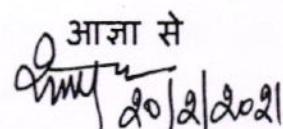 आज्ञा से
20/2/2021